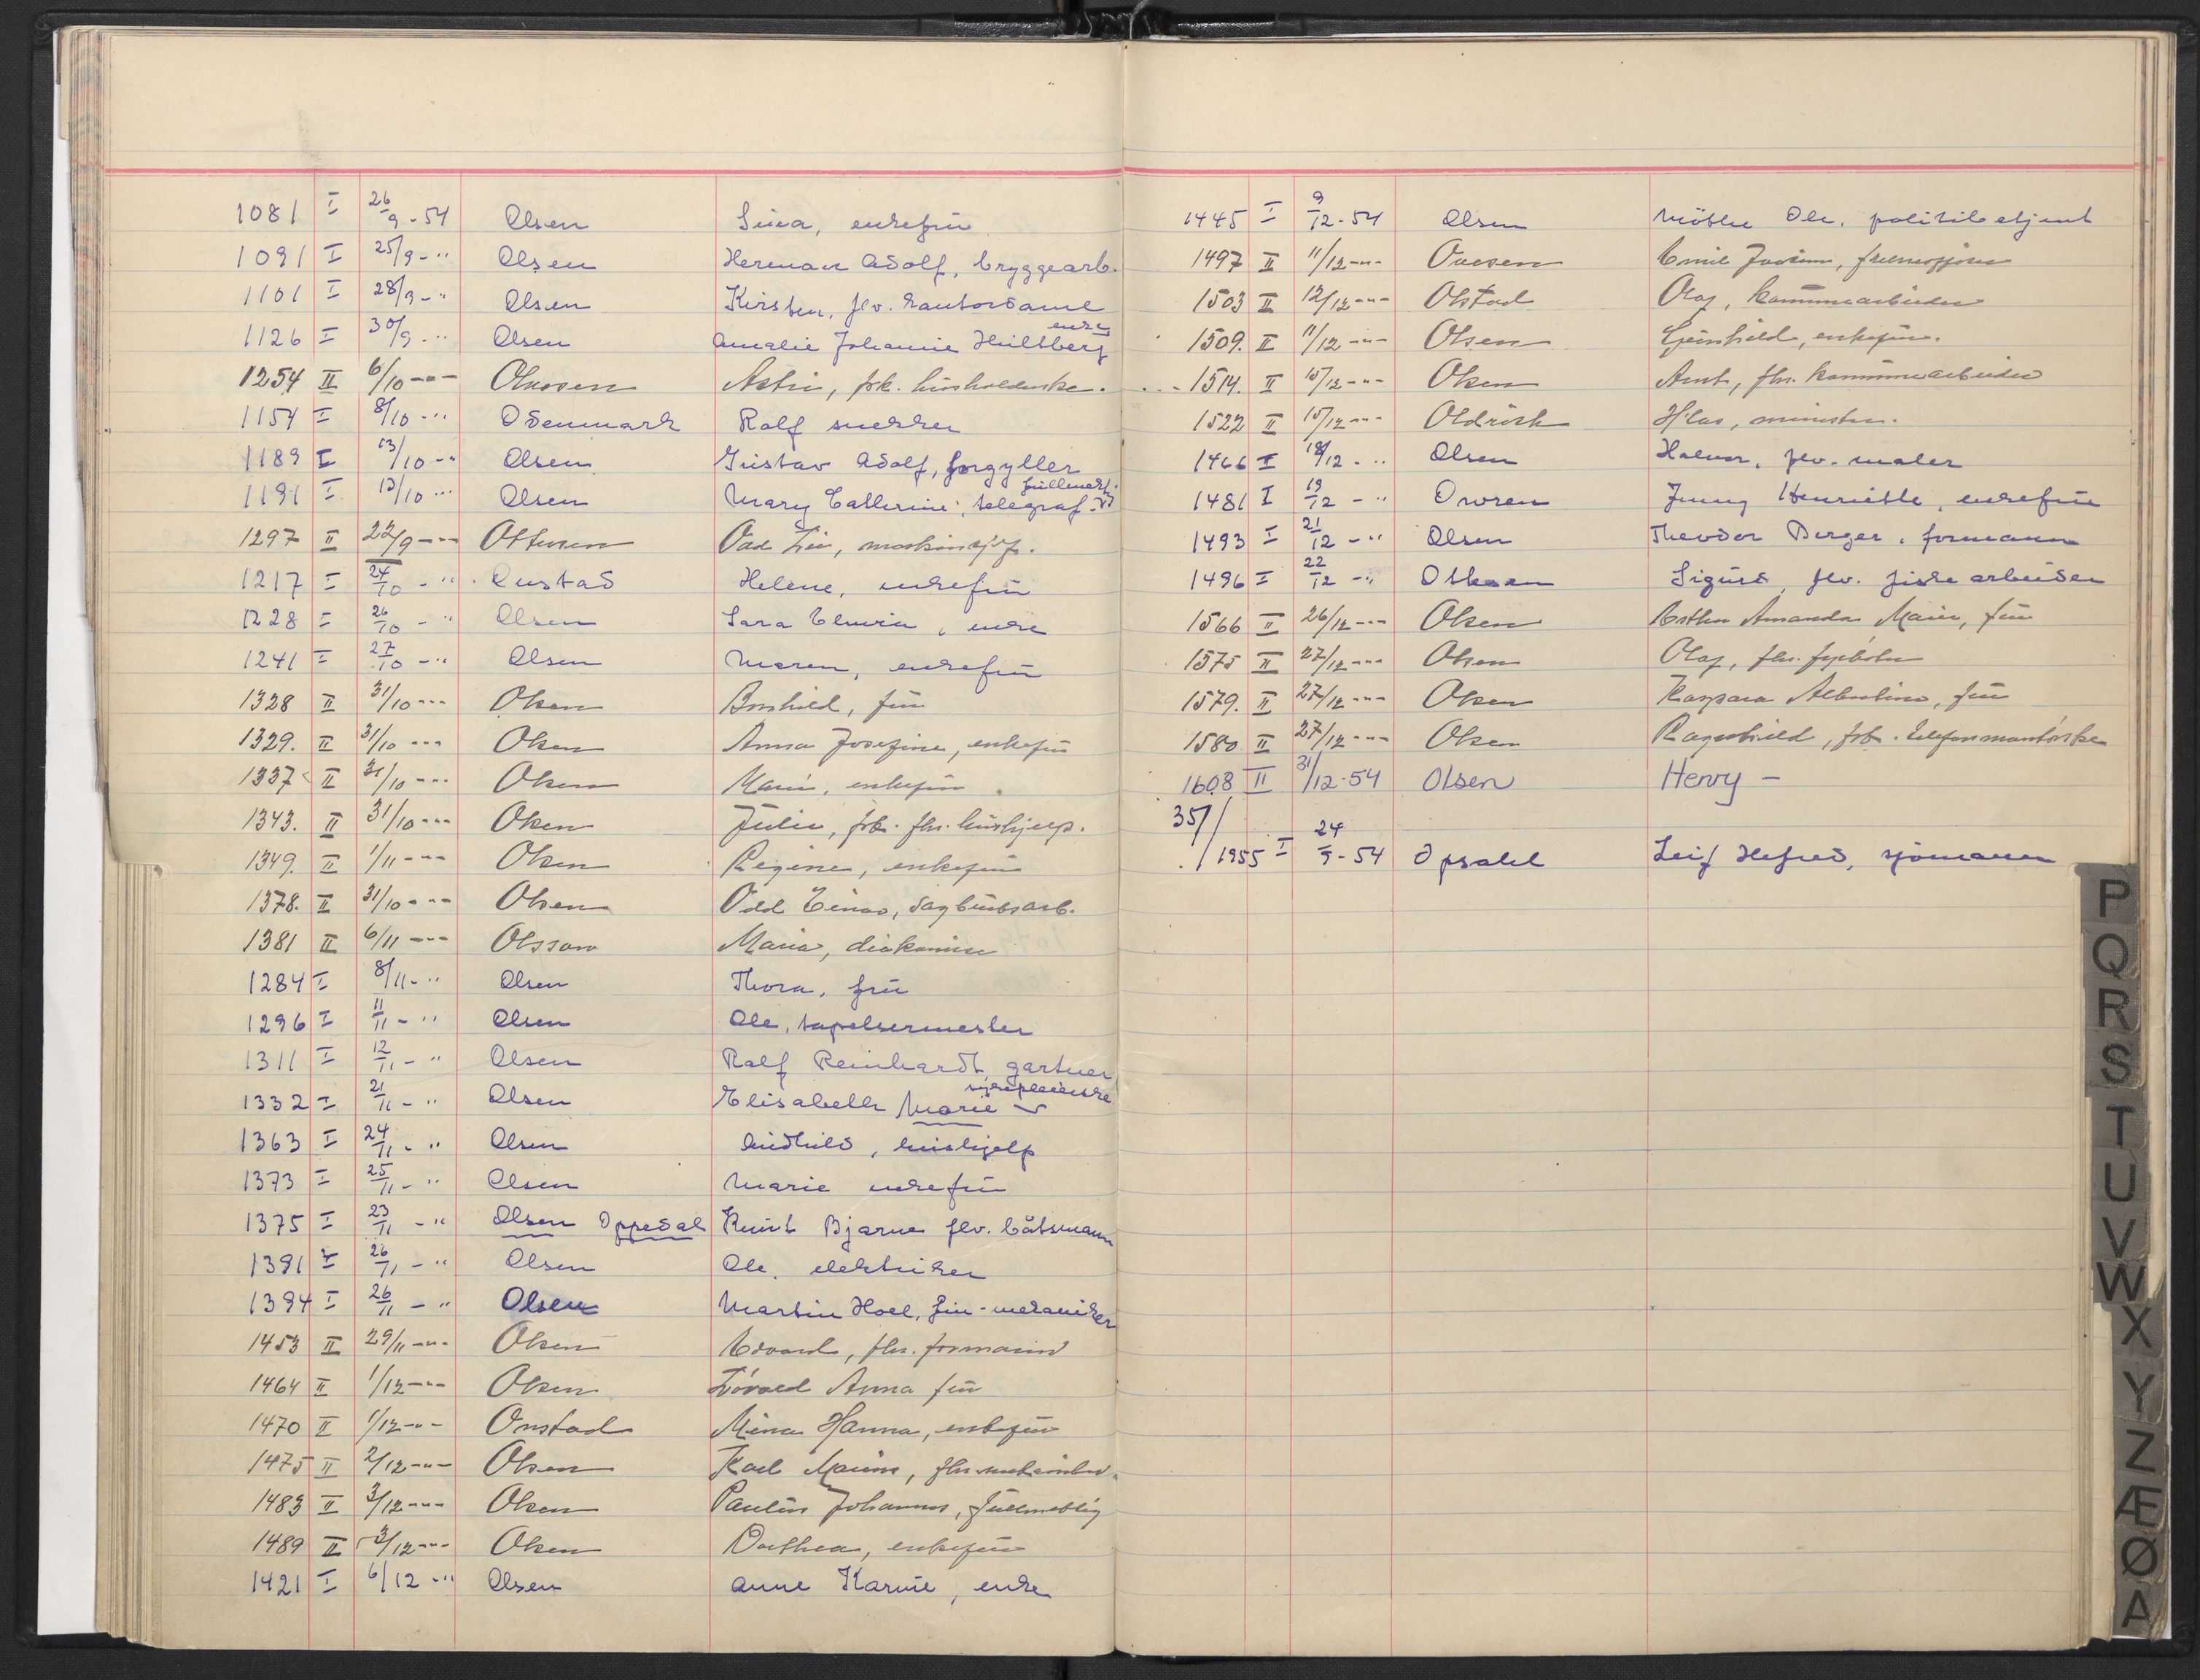 1081 I 26/9-54 Olsen Sina, enkefrü
1091 I 25/9-" Olsen Herman Adolf, bryggearb.
1101 I 28/9-" Olsen Kirsten, flv. kontordame
1126 I 30/9-" Olsen Amalie Johanne Hultberg enke
1254 II 6/10-"- Olausen Astri, frk. hüsholderske.
1154 I 8/10-" Odenmark Rolf snekker
1189 I 13/10-" Olsen Güstav Adolf, forgyller
1191 I 13/10-" Olsen Mary Cathrine, telegraf-füllmekt.
1297 II 22/9-"- Ottesen Odd maskinsjef.
1217 I 24/10-" Onstad Helene, enkefrü
1228 I 26/10-" Olsen Sara Elvira, enke
1241 I 27/10-" Olsen Maren, enkefrü
1328 II 31/10-"- Olsen Borghild, frü
1329. II 31/10-"- Olsen Anna Josefine, enkefrü
1337 II 31/10-"- Olsen Marie, enkefrü
1343. II 31/10-"- Olsen Jülie, frk. fhv. hüshjelp.
1349. II 1/11-"- Olsen Regine, enkefrü
1378. II 31/10-"- Olsen Odd Einar, sagbrüksarb.
1381 II 6/11-"- Olsson Maria, diakonisse
1284 I 8/11-" Olsen Thora, frü
1296 I 11/11-" Olsen Ole, tapetsermester
1311 I 12/11-" Olsen Rolf Reinhardt gartner
1332 I 21/11-" Olsen Elisabeth Marie sykepleierske
1363 I 24/11-" Olsen hüshjelp
1373 I 25/11-" Olsen Marie enkefrü
1375 I 23/11-" Olsen Oppedal Knüt Bjarne flv. båtsmann
1391 I 26/11-" Olsen Ole. elektriker
1394 I 26/11-" Olsen Martin Hoel, fin-mekaniker
1453 II 29/11-"- Olsen Edvard, fhv. formann
1464 II 1/12-"- Olsen Lövold Anna frü
1470 II 1/12-"- Onstad Mina Hanna, enkefrü
1475 II 2/12-"- Olsen Karl Marius, fhv.
1483 II 3/12-"- Olsen Paülüs Johannes, füllmektig
1489 II 3/12-"- Olsen Dorthea, enkefrü
1421 I 6/12-" Olsen Anne Karine, enke
1445 I 9/12-54 Olsen Ole, politibetjent
1497 II 11/12-"- Ovesen Emil
1503 II 12/12-"- Olstad Olaf, kommünearbeider
1509. II 11/12-"- Olsen Günhild, enkefrü.
1514. II 15/12-"- Olsen Arnt, fhv. kommünearbeider
1522 II 15/12-"- Oldrich
1466 I 18/12-" Olsen Halvor, flv. maler
1481 I 19/12-" Ovoren Jenny Henriette, enkefrü
1493 I 21/12-" Olsen Theodor Berger, formann
1496 I 22/12-" Ottesen Sigürd flv. fiskearbeider
1566 II 26/12-"- Olsen Esther Amanda Marie, frü
1575 II 27/12-"- Olsen Olaf, fhv. fyrbøter
1579. II 27/12-"- Olsen Kaspara Albertine, frü
1580 II 27/12-"- Olsen Ragnhild, frk. telefonmontørske
1608 II 31/12-54 Olsen Henry -
35/1955 I 24/9-54 Opsahl Leif Hefred, sjömann
P
Q
R
S
T
U
V
W
X
Y
Z
Æ
Ø
A